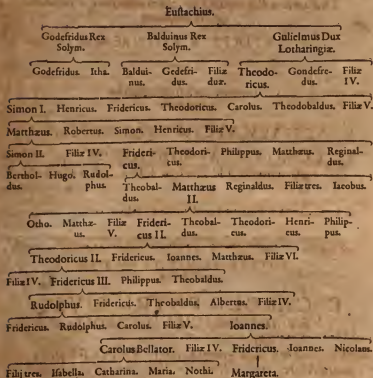 Eustachius.
Godefridus Rex Balduinus Rex Gulielmus Dux
Solym. Solym. Lotharingiæ.
Godefridus. Itha. Baldui- Gedefri- Filiæ Theodo- Gondefre- Filiæ
nus. dus. duæ. ricus. dus. IV.
Simon I. Henricus. Fridericus. Theodoricus. Carolus. Theobaldus. Filiæ V.
Matthæus. Robertus. Simon. Henricus. Filiæ V.
Simon II. Filiæ IV. Frideri- Theodori- Philippus. Matthæus. Reginal-
cus. cus. dus.
Berthol- Hugo. Rudol- Theobal- Matthæus Reginaldus. Filiæ tres. Iacobus.
dus. phus. dus. II.
Otho. Matthæ- Filiæ Frideri- Theobal- Theodori- Henri- Philip-
us. V. cus II. dus. cus. cus. pus.
Theodoricus II. Fridericus. Ioannes. Matthæus. Filiæ VI.
Filiæ IV. Fridericus III. Philippus. Theobaldus.
Rudolphus. Fridericus. Theobaldus. Albertus. Filiæ IV.
Fridericus. Rudolphus. Carolus. Filiæ V. Ioannes.
Carolus Bellator. Filiæ IV. Fridericus. Ioannes. Nicolaus.
Filij tres. Isabella. Catharina. Maria. Nothi. Margareta.